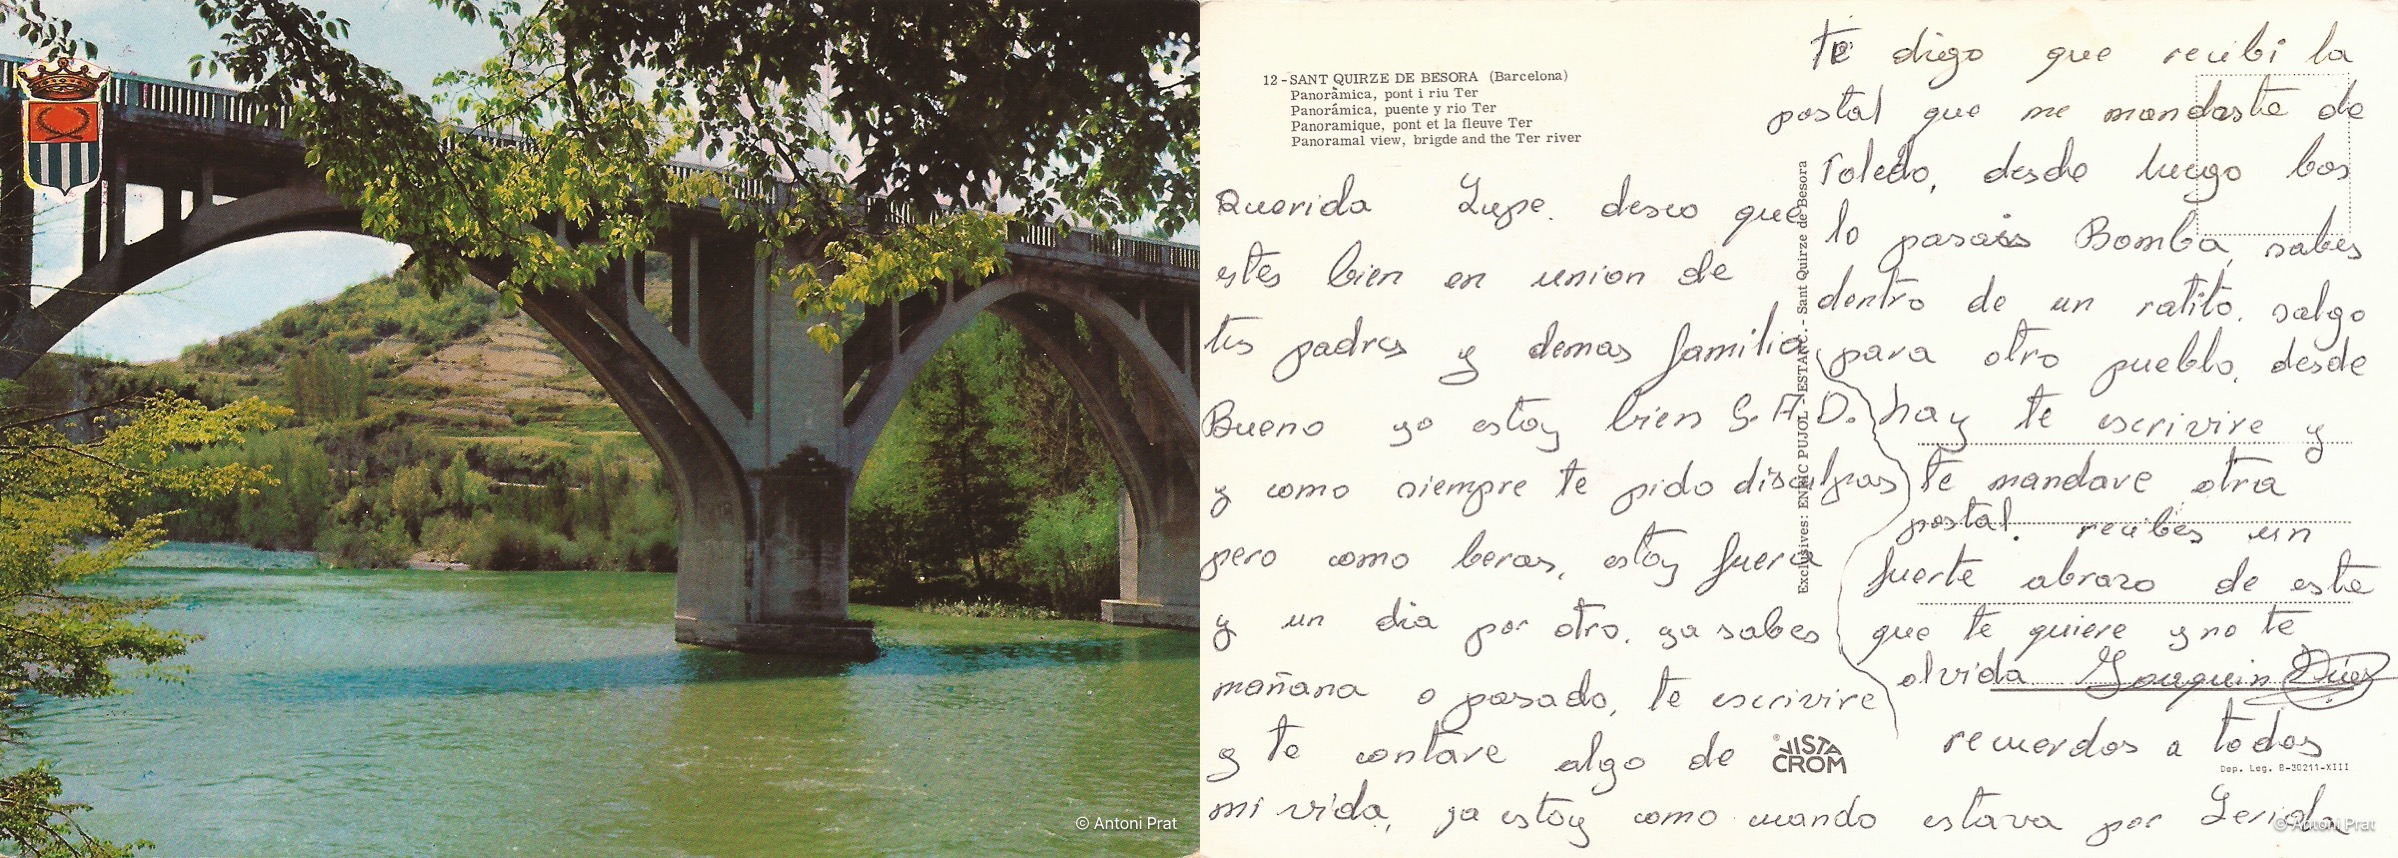 © Antoni Prat
12 - SANT QUIRZE DE BESORA (Barcelona)
Panoràmica, pont i riu Ter
Panorámica, puente y rio Ter
Panoramique, pont et la fleuve Ter
Panoramal view, brigde and the Ter river
Querida Lupe. deseo que
estes bien en union de
tus padres y demas familia
Bueno yo estoy bien G. A D.
y como siempre te pido disculpas
pero como beras, estoy fuera
y un dia por otro. ya sabes
mañana o pasado, te escrivire
y te contare algo de
mi vida, ya estoy como cuando estava por Lerida
Exclusives: ENRIC PUJOL - ESTANC. - Sant Quirze de Besora
VISTA
CROM
te digo que recibi la
postal que me mandaste de
Toledo, desde luego bos
lo pasais Bomba, sabes
dentro de un ratito. salgo
para otro pueblo, desde
hay te escrivire y
te mandare otra
postal. recibes un
fuerte abrazo de este
que te quiere y no te
olvida Joaquin Diez
recuerdos a todos
Dep. Leg. B-30211-XIII
© Antoni Prat